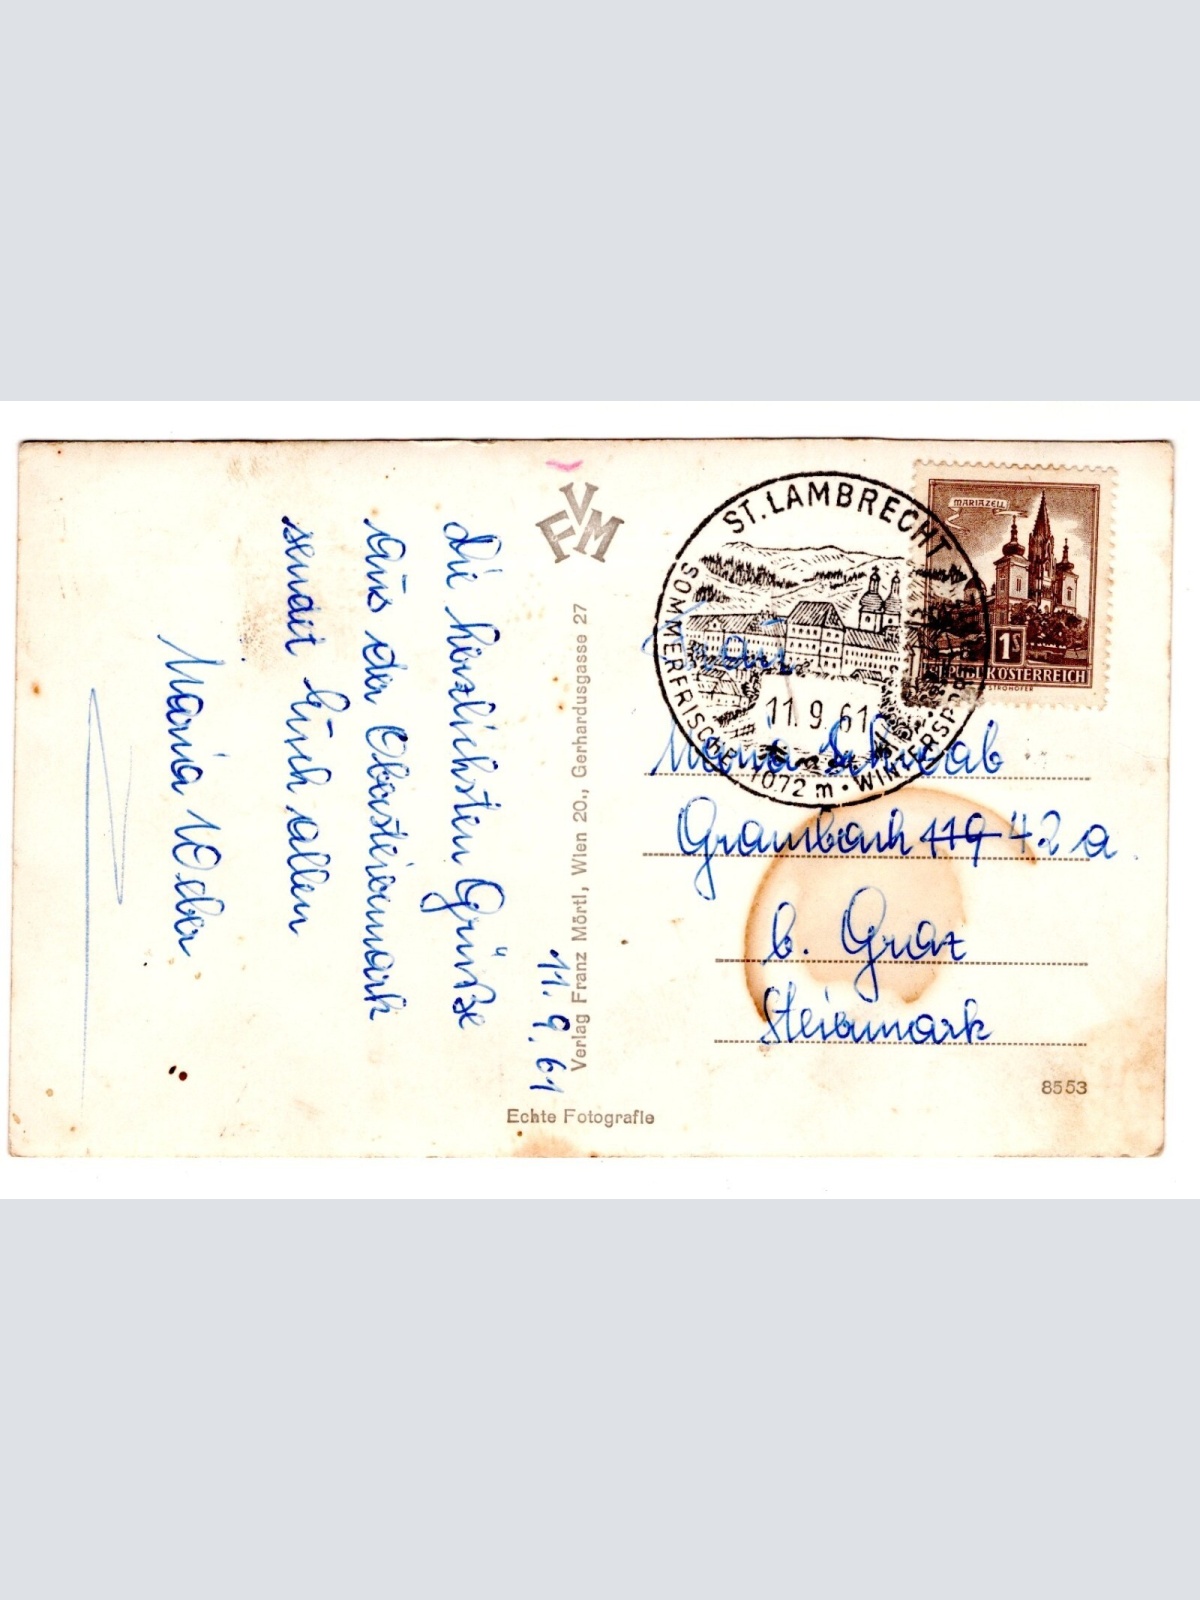 11. 9. 61
Die herzlichsten Grüße
aus der Obersteiermark
sendet Euch allen
Maria Weber
FVM
Verlag Franz Mörtl, Wien 20., Gerhardusgasse 27
Echte Fotografie
ST. LAMBRECHT
SOMMERFRISCHE · 1072 m · WINTERSPORT
11. 9. 61
MARIAZELL
1S
REPUBLIK ÖSTERREICH
STROHOFER
Frau
Maria Schwab
Grambach 119 42 a
b. Graz
Steiermark
8553